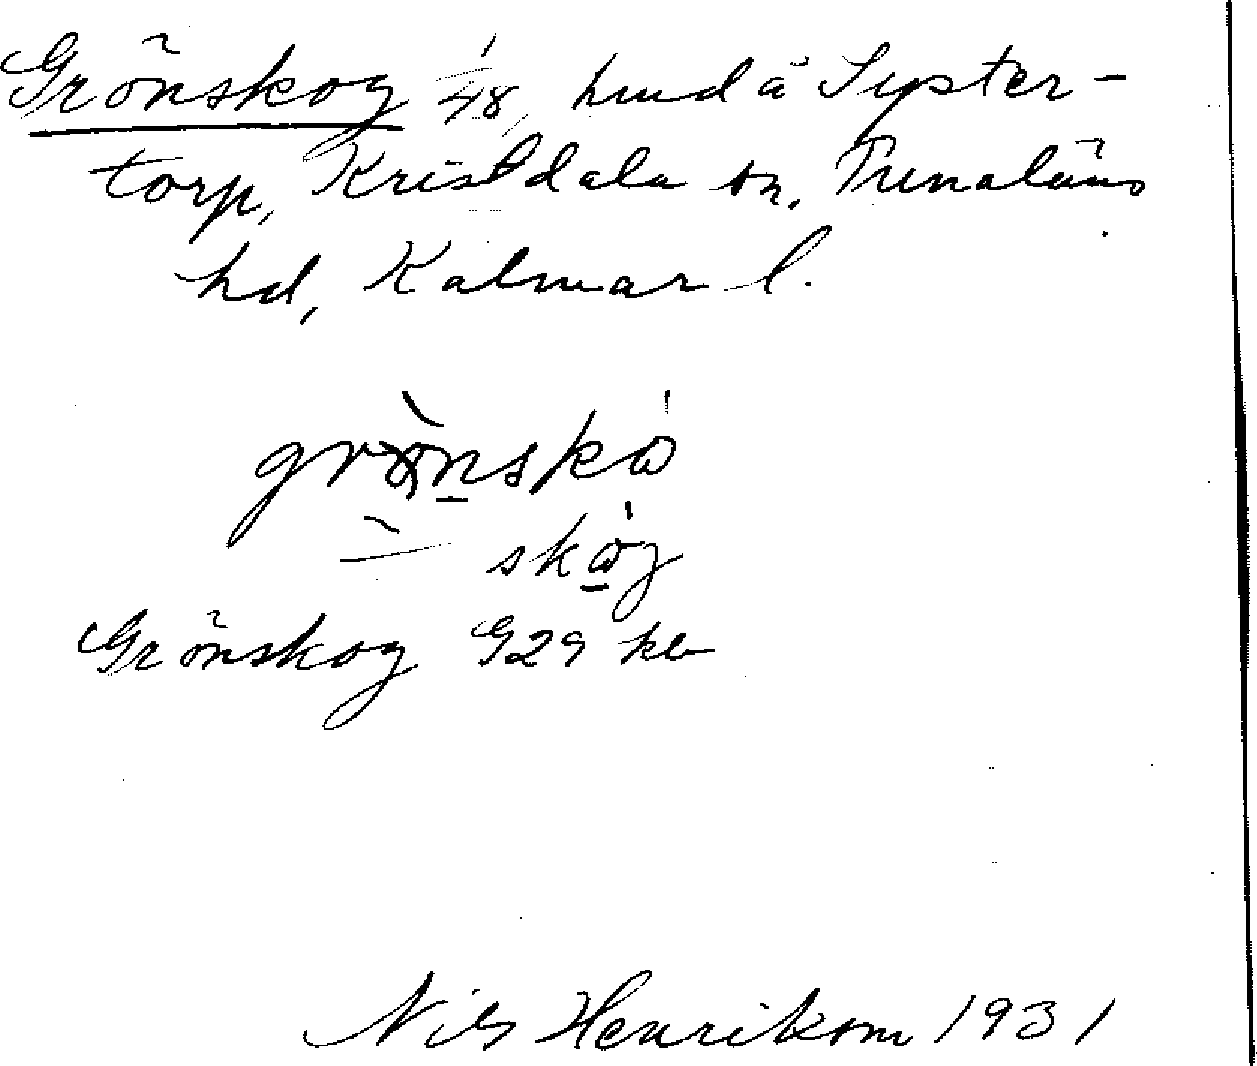 Grönskog 1/48, hmd å Syster-
torp, Kristdala sn, Tunaläns
hd, Kalmar l.
grö̀nskå
skåg
Grönskog G29 kb
Nils Henrikson 1931